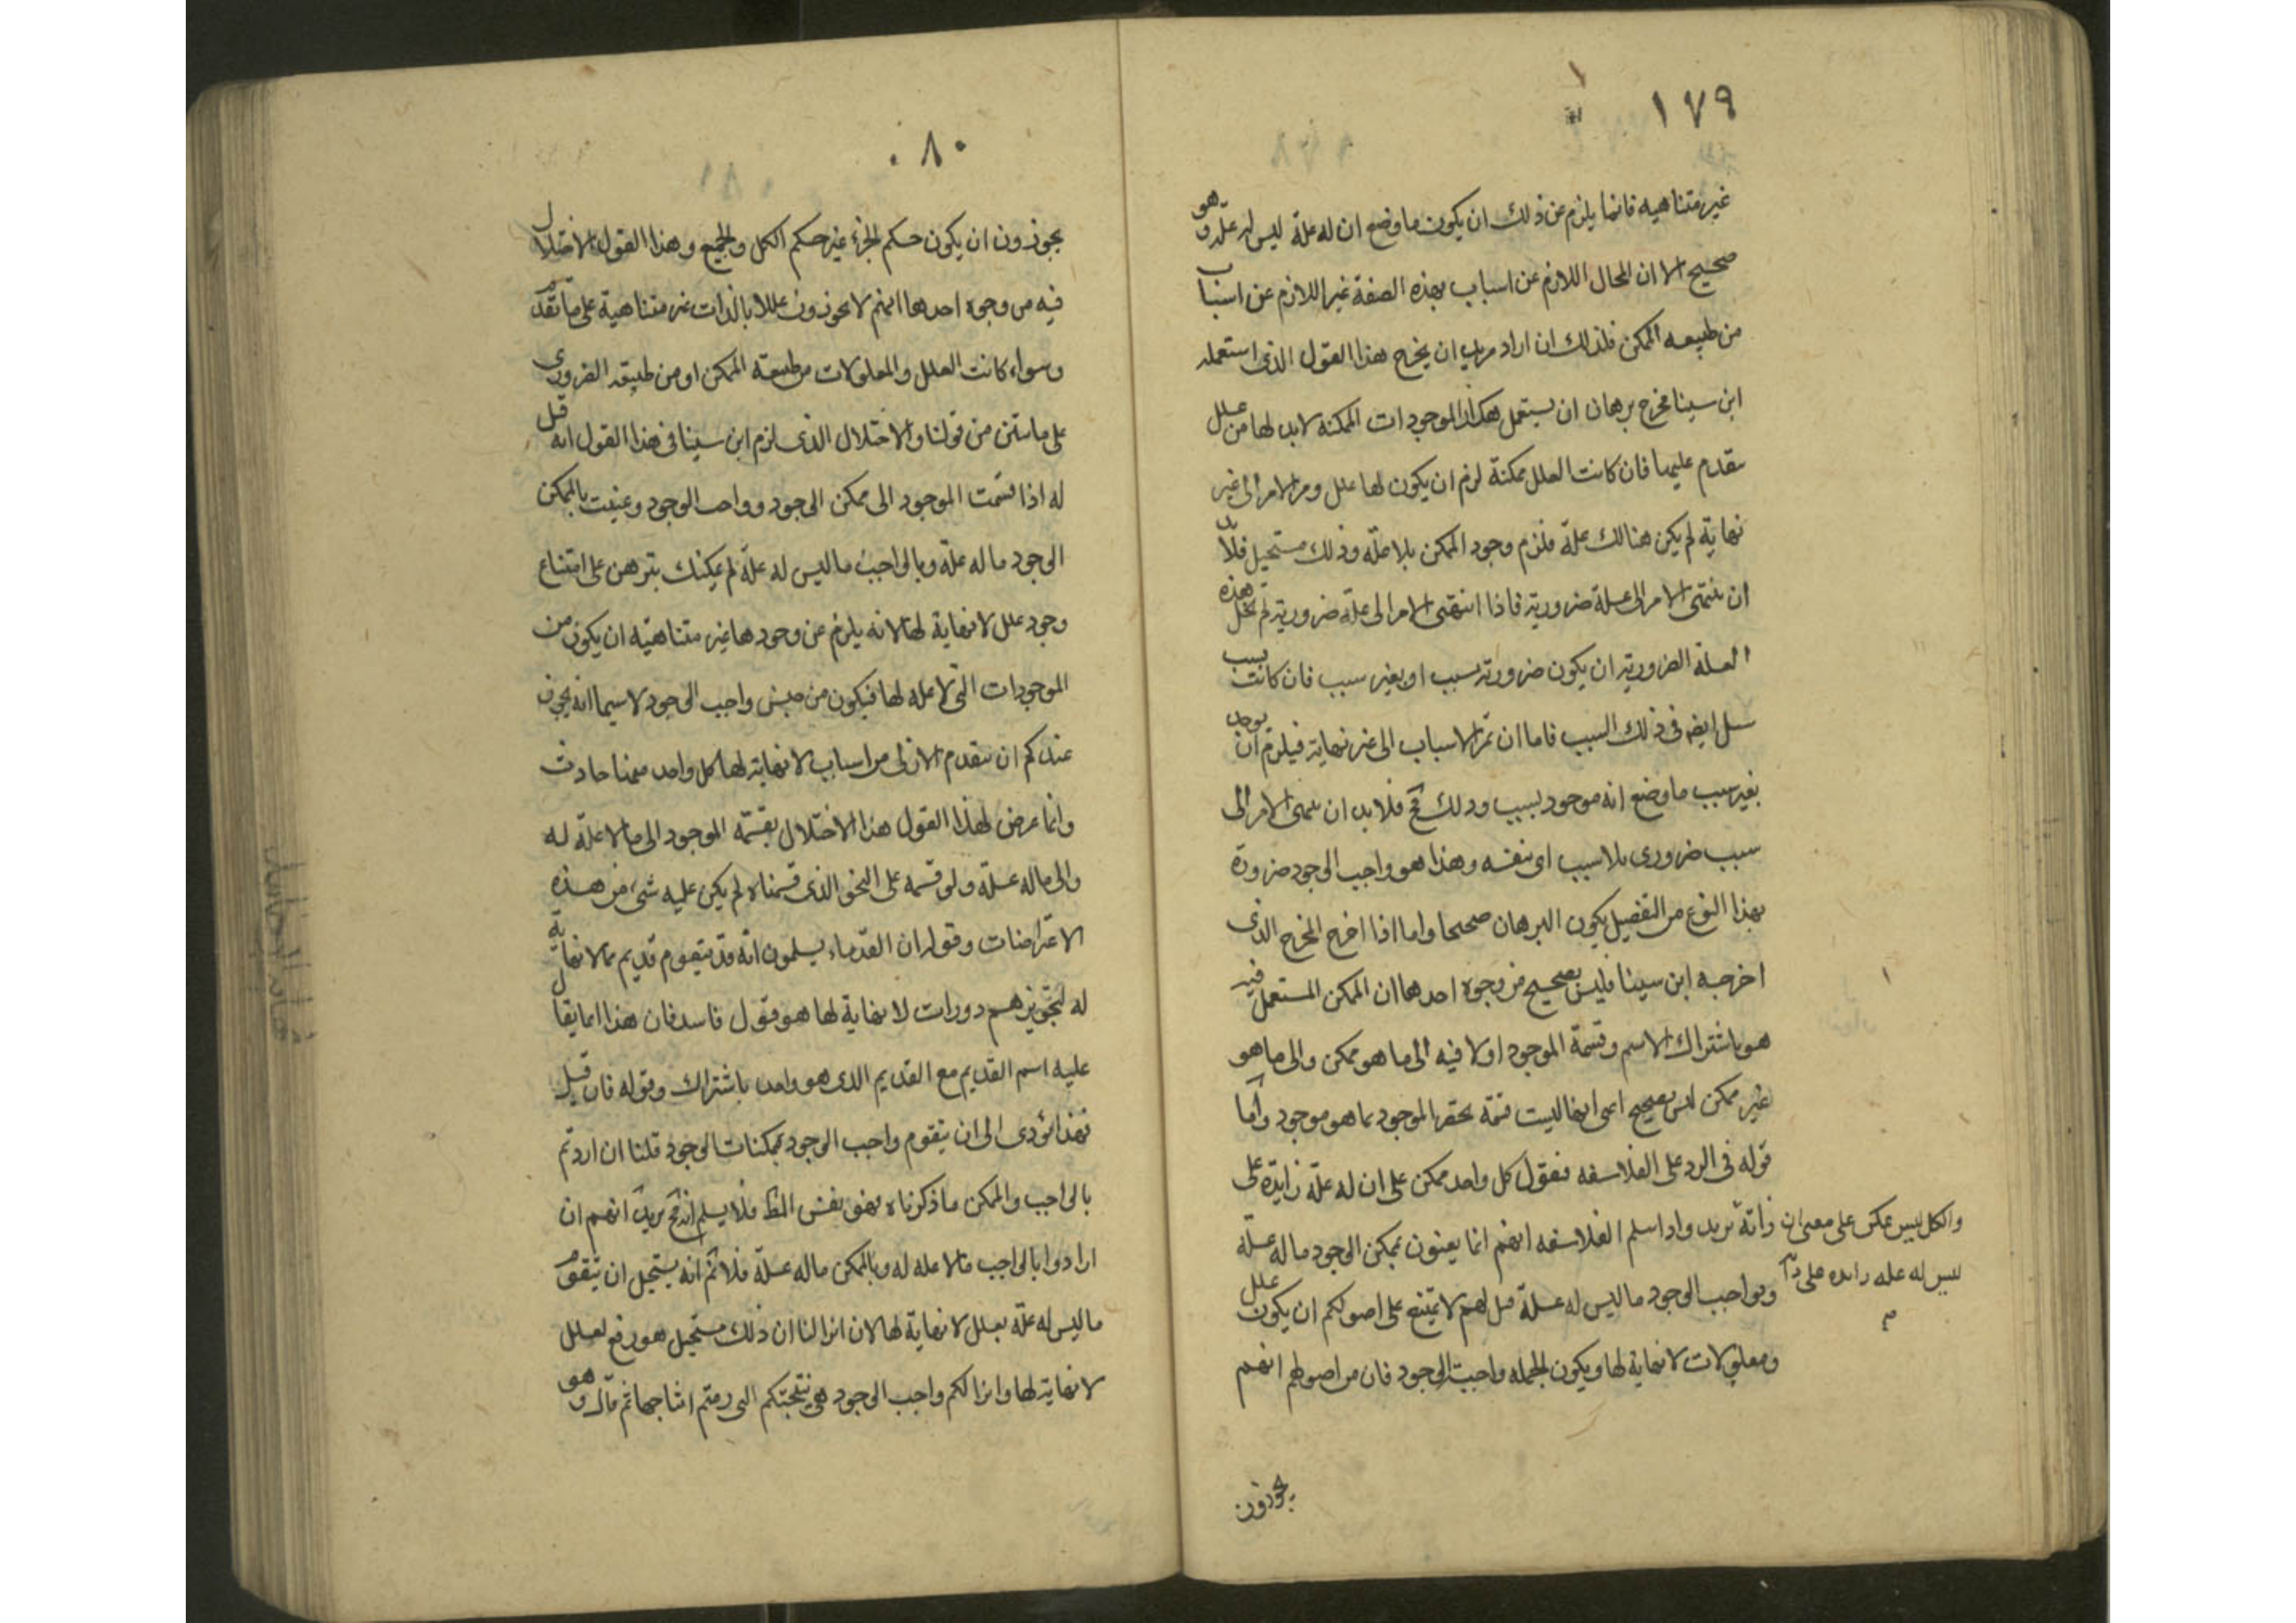 ١٧٩
غير متناهيه فانما يلزم عن ذلك ان يكون ما وضع ان له علة ليس له علة وهو
صحيح الا ان المحال اللازم عن اسباب بهذه الصفة غير اللازم عن اسباب
من طبيعه الممكن فلذلك ان اراد مريد ان يخرج هذا القول الذى استعمله
ابن سينا مخرج برهان ان يستعمل هكذا الموجودات الممكنه لابد لها من علل
تتقدم عليها فان كانت العلل ممكنة لزم ان يكون لها علل ومر الامر الى غير
نهاية لم يكن هنالك علة فلزم وجود الممكن بلا علة وذلك مستحيل فلابد
ان ينتهى الامر الى علة ضرورية فاذا انتهى الامر الى علة ضرورية لم تخل هذه
العلة الضرورية ان يكون ضرورية بسبب او بغير سبب فان كانت بسبب
سئل ايضا فى ذلك السبب فاما ان تمر الاسباب الى غير نهاية فيلزم ان يوجد
بغير سبب ما وضع انه موجود بسبب وذلك مح فلا بد ان ينتهى الامر الى
سبب ضرورى بلا سبب اى بنفسه وهذا هو واجب الوجود ضرورة
بهذا النوع من التفصيل يكون البرهان صحيحا واما اذا اخرج المخرج الذى
اخرجه ابن سينا فليس بصحيح من وجوه احدها ان الممكن المستعمل فيه
هو باشتراك الاسم وقسمة الموجود اولا فيه الى ما هو ممكن والى ما هو
غير ممكن ليس بصحيح اعنى انها ليست قسمة تحصر الموجود بما هو موجود واما
قوله فى الرد على الفلاسفه فنقول كل واحد ممكن على ان له علة زايدة على
ذاته يريد واذا سلم الفلاسفه انهم انما يعنون بممكن الوجود ما له علة
وبواجب الوجود ما ليس له علة قيل لهم لا يمتنع على اصولكم ان يكون علل
ومعلولات لا نهاية لها ويكون الجمله واجبة الوجود فان من اصولهم انهم
والكل ليس بممكن على معنى ان
ليس له علة زايده على ذا
يجوزون
٨٠
يجوزون ان يكون حكم الجزء غير حكم الكل والجميع وهذا القول الاختلال
فيه من وجوه احدها انهم لا يجوزون عللا بالذات غير متناهية على ما تقدم
وسواء كانت العلل والمعلولات من طبيعة الممكن او من طبيعة الضرورى
على ما تبين من قولنا والاختلال الذى لزم ابن سينا فى هذا القول انه قيل
له اذا قسمت الموجود الى ممكن الوجود وواجب الوجود وعنيت بالممكن
الوجود ما له علة وبالواجب ما ليس له علة لم يمكنك تبرهن على امتناع
وجود علل لا نهاية لها لانه يلزم عن وجودها غير متناهية ان يكون من
الموجودات التى لا علة لها فيكون من جنس واجب الوجود لا سيما انه يجوز
عندكم ان يتقدم الازلى من اسباب لا نهاية لها كل واحد منها حادث
وانما عرض لهذا القول هذا الاختلال بقسمة الموجود الى ما لا علة له
والى ما له علة ولو قسمه على النحو الذى قسمناه لم يكن عليه شىء من هذه
الاعتراضات وقوله ان القدماء يسلمون انه قد يتقوم قديم بما لا نهاية
له لتجويزهم دورات لا نهاية لها هو قول فاسد فان هذا انما يقال
عليه اسم القديم مع القديم الذى هو واحد باشتراك وقوله فان قيل
فهذا يؤدى الى ان يتقوم واجب الوجود بممكنات الوجود قلنا ان اردتم
بالواجب والممكن ما ذكرناه فهو نفس المط فلا يسلم انه مح يريد انهم ان
ارادوا بالواجب ما لا علة له وبالممكن ما له علة فلا ثم انه يستحيل ان يتقوم
ما ليس له علة بعلل لا نهاية لها لان انزالنا ان ذلك مستحيل هو رفع لعلل
لا نهاية لها وانزالكم واجب الوجود هى نتيجتكم التى رمتم انتاجها ثم قال وهو